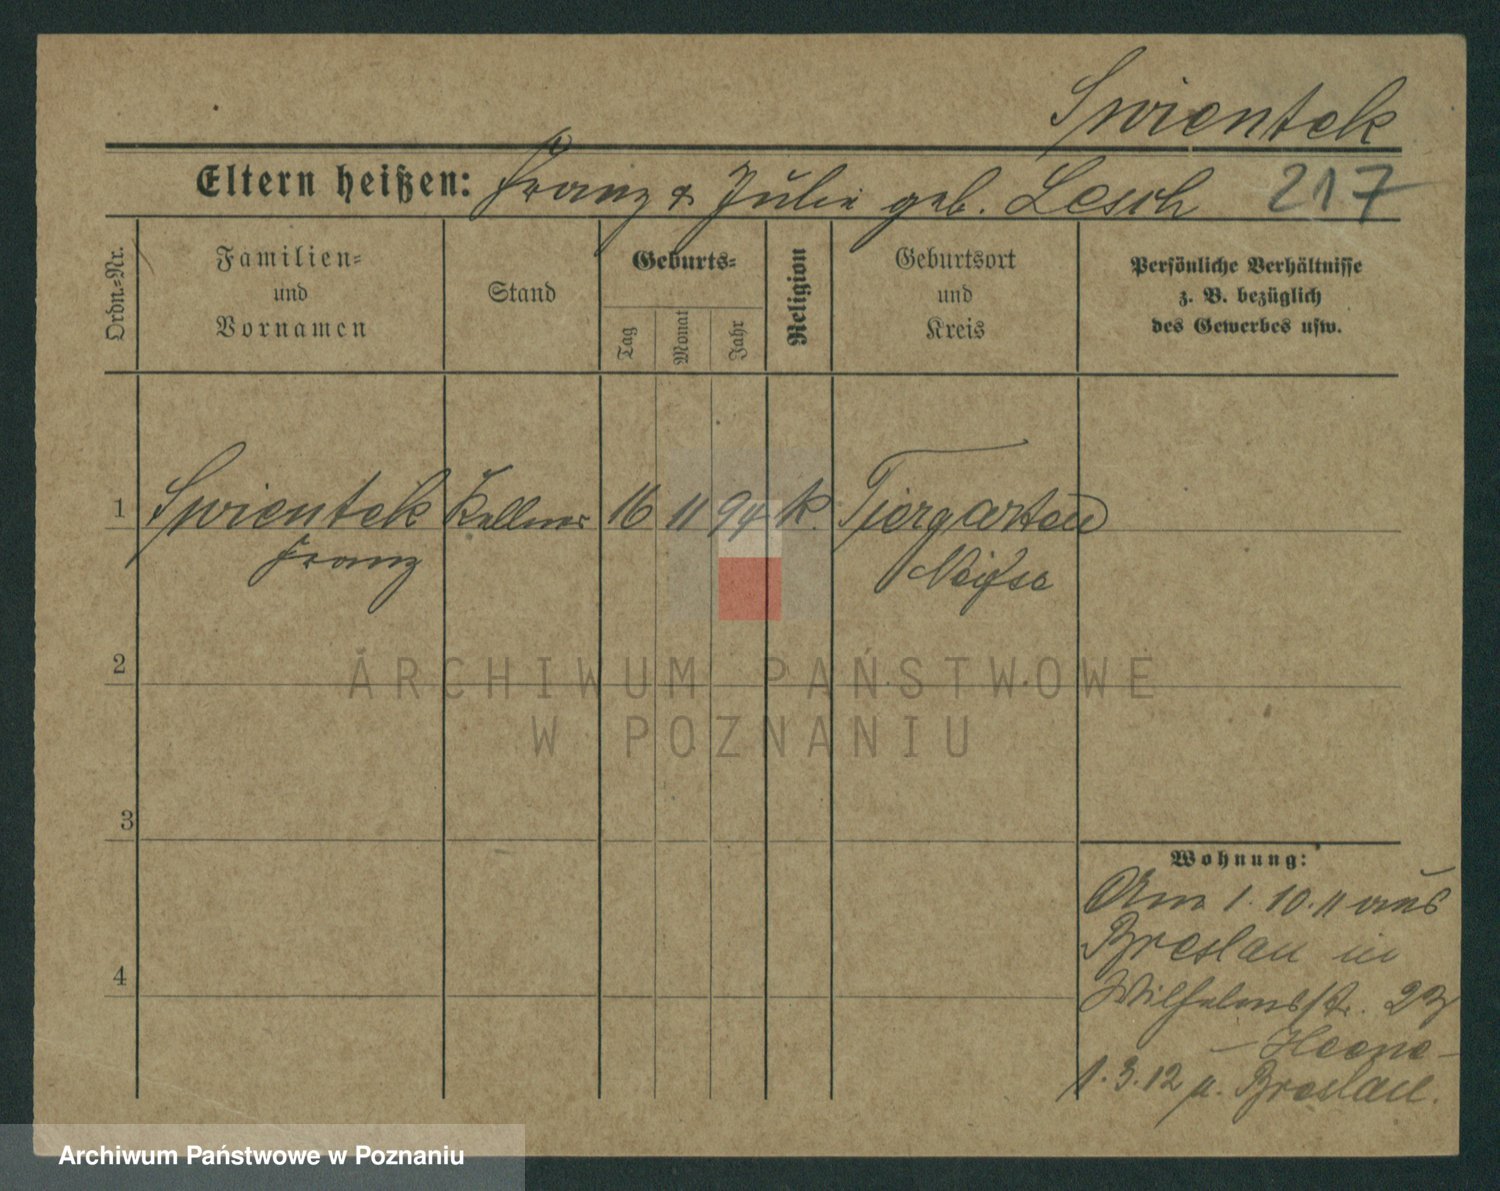 Swientek
Eltern heißen: Franz & Julie geb. Lesch 217
Ordn.-Nr.
Familien-
und
Vornamen
Stand
Geburts-
Tag
Monat
Jahr
Religion
Geburtsort
und
Kreis
Persönliche Verhältnisse
z. B. bezüglich
des Gewerbes usw.
1 Swientek Kellner 16 11 94 k. Tiergarten
Franz Neisse
2
3
4
Wohnung:
Am 1.10.11 aus
Breslau in
Wilhelmstr. 23
1.3.12 n. Breslau.
ARCHIWUM PAŃSTWOWE
W POZNANIU
Archiwum Państwowe w Poznaniu